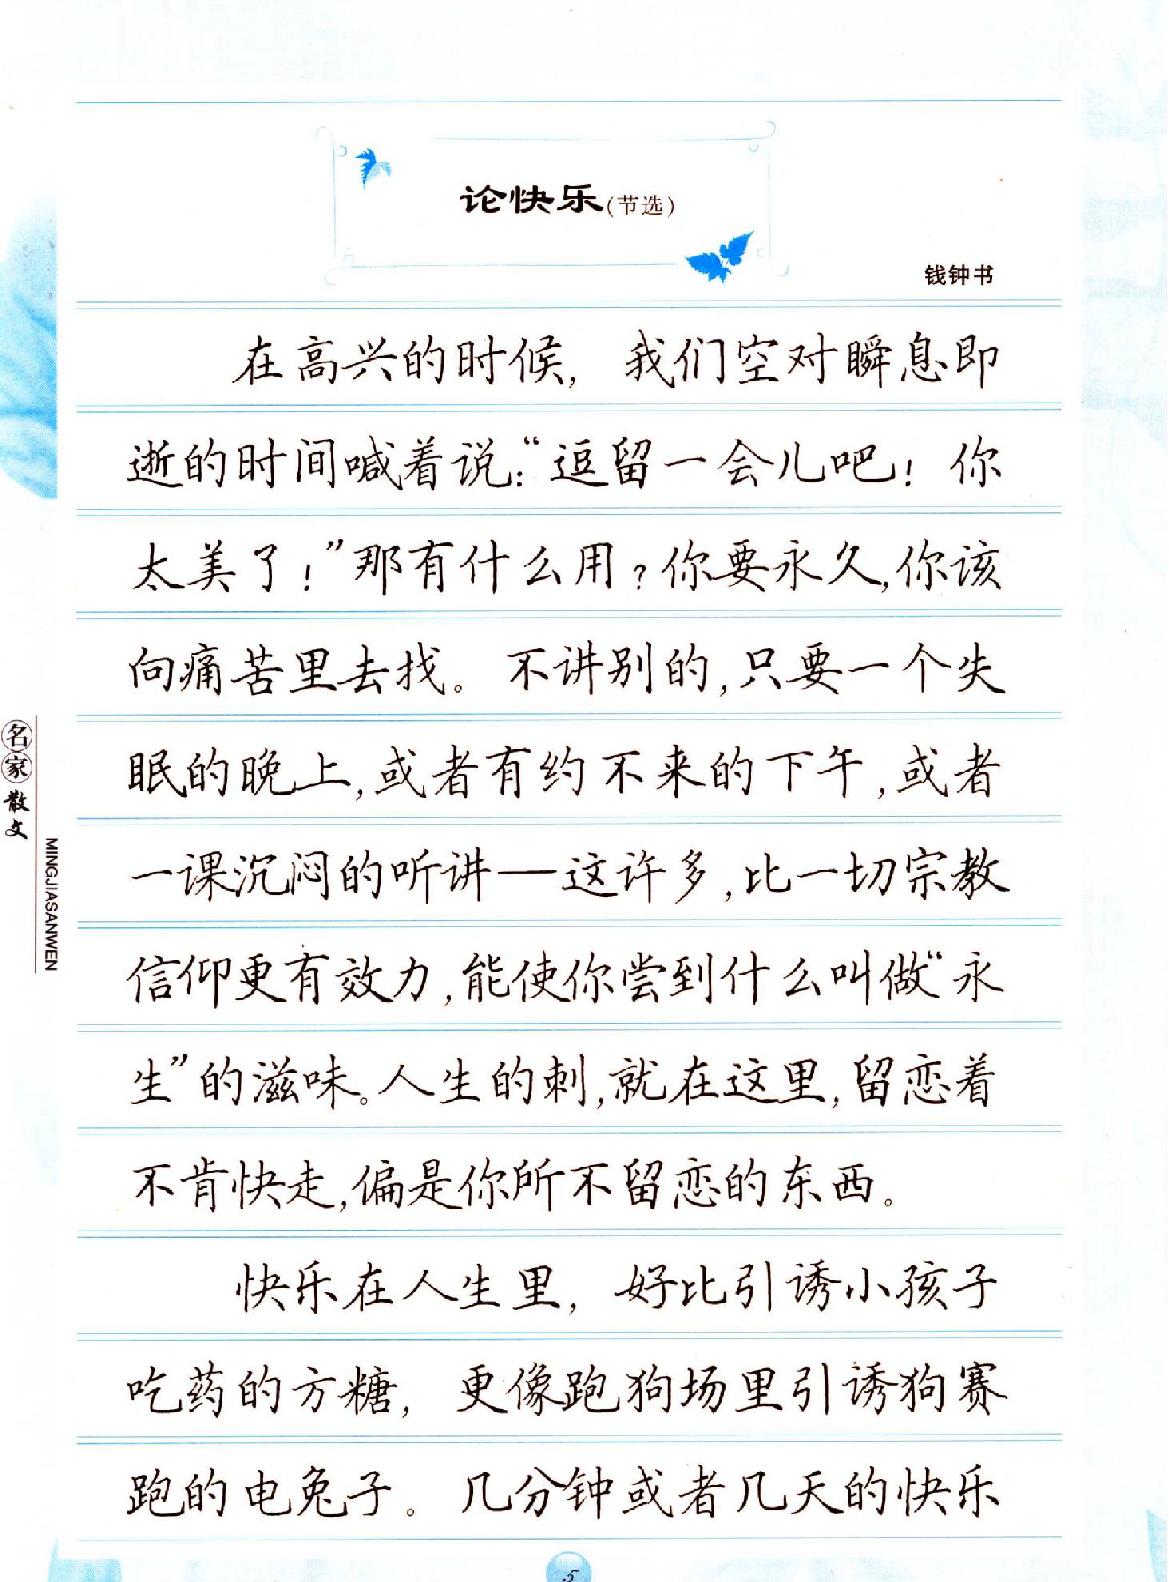 论快乐(节选)
钱钟书
在高兴的时候，我们空对瞬息即
逝的时间喊着说：“逗留一会儿吧！你
太美了！”那有什么用？你要永久，你该
向痛苦里去找。不讲别的，只要一个失
眠的晚上，或者有约不来的下午，或者
一课沉闷的听讲——这许多，比一切宗教
信仰更有效力，能使你尝到什么叫做“永
生”的滋味。人生的刺，就在这里，留恋着
不肯快走，偏是你所不留恋的东西。
快乐在人生里，好比引诱小孩子
吃药的方糖，更像跑狗场里引诱狗赛
跑的电兔子。几分钟或者几天的快乐
名家散文
MINGJIASANWEN
5